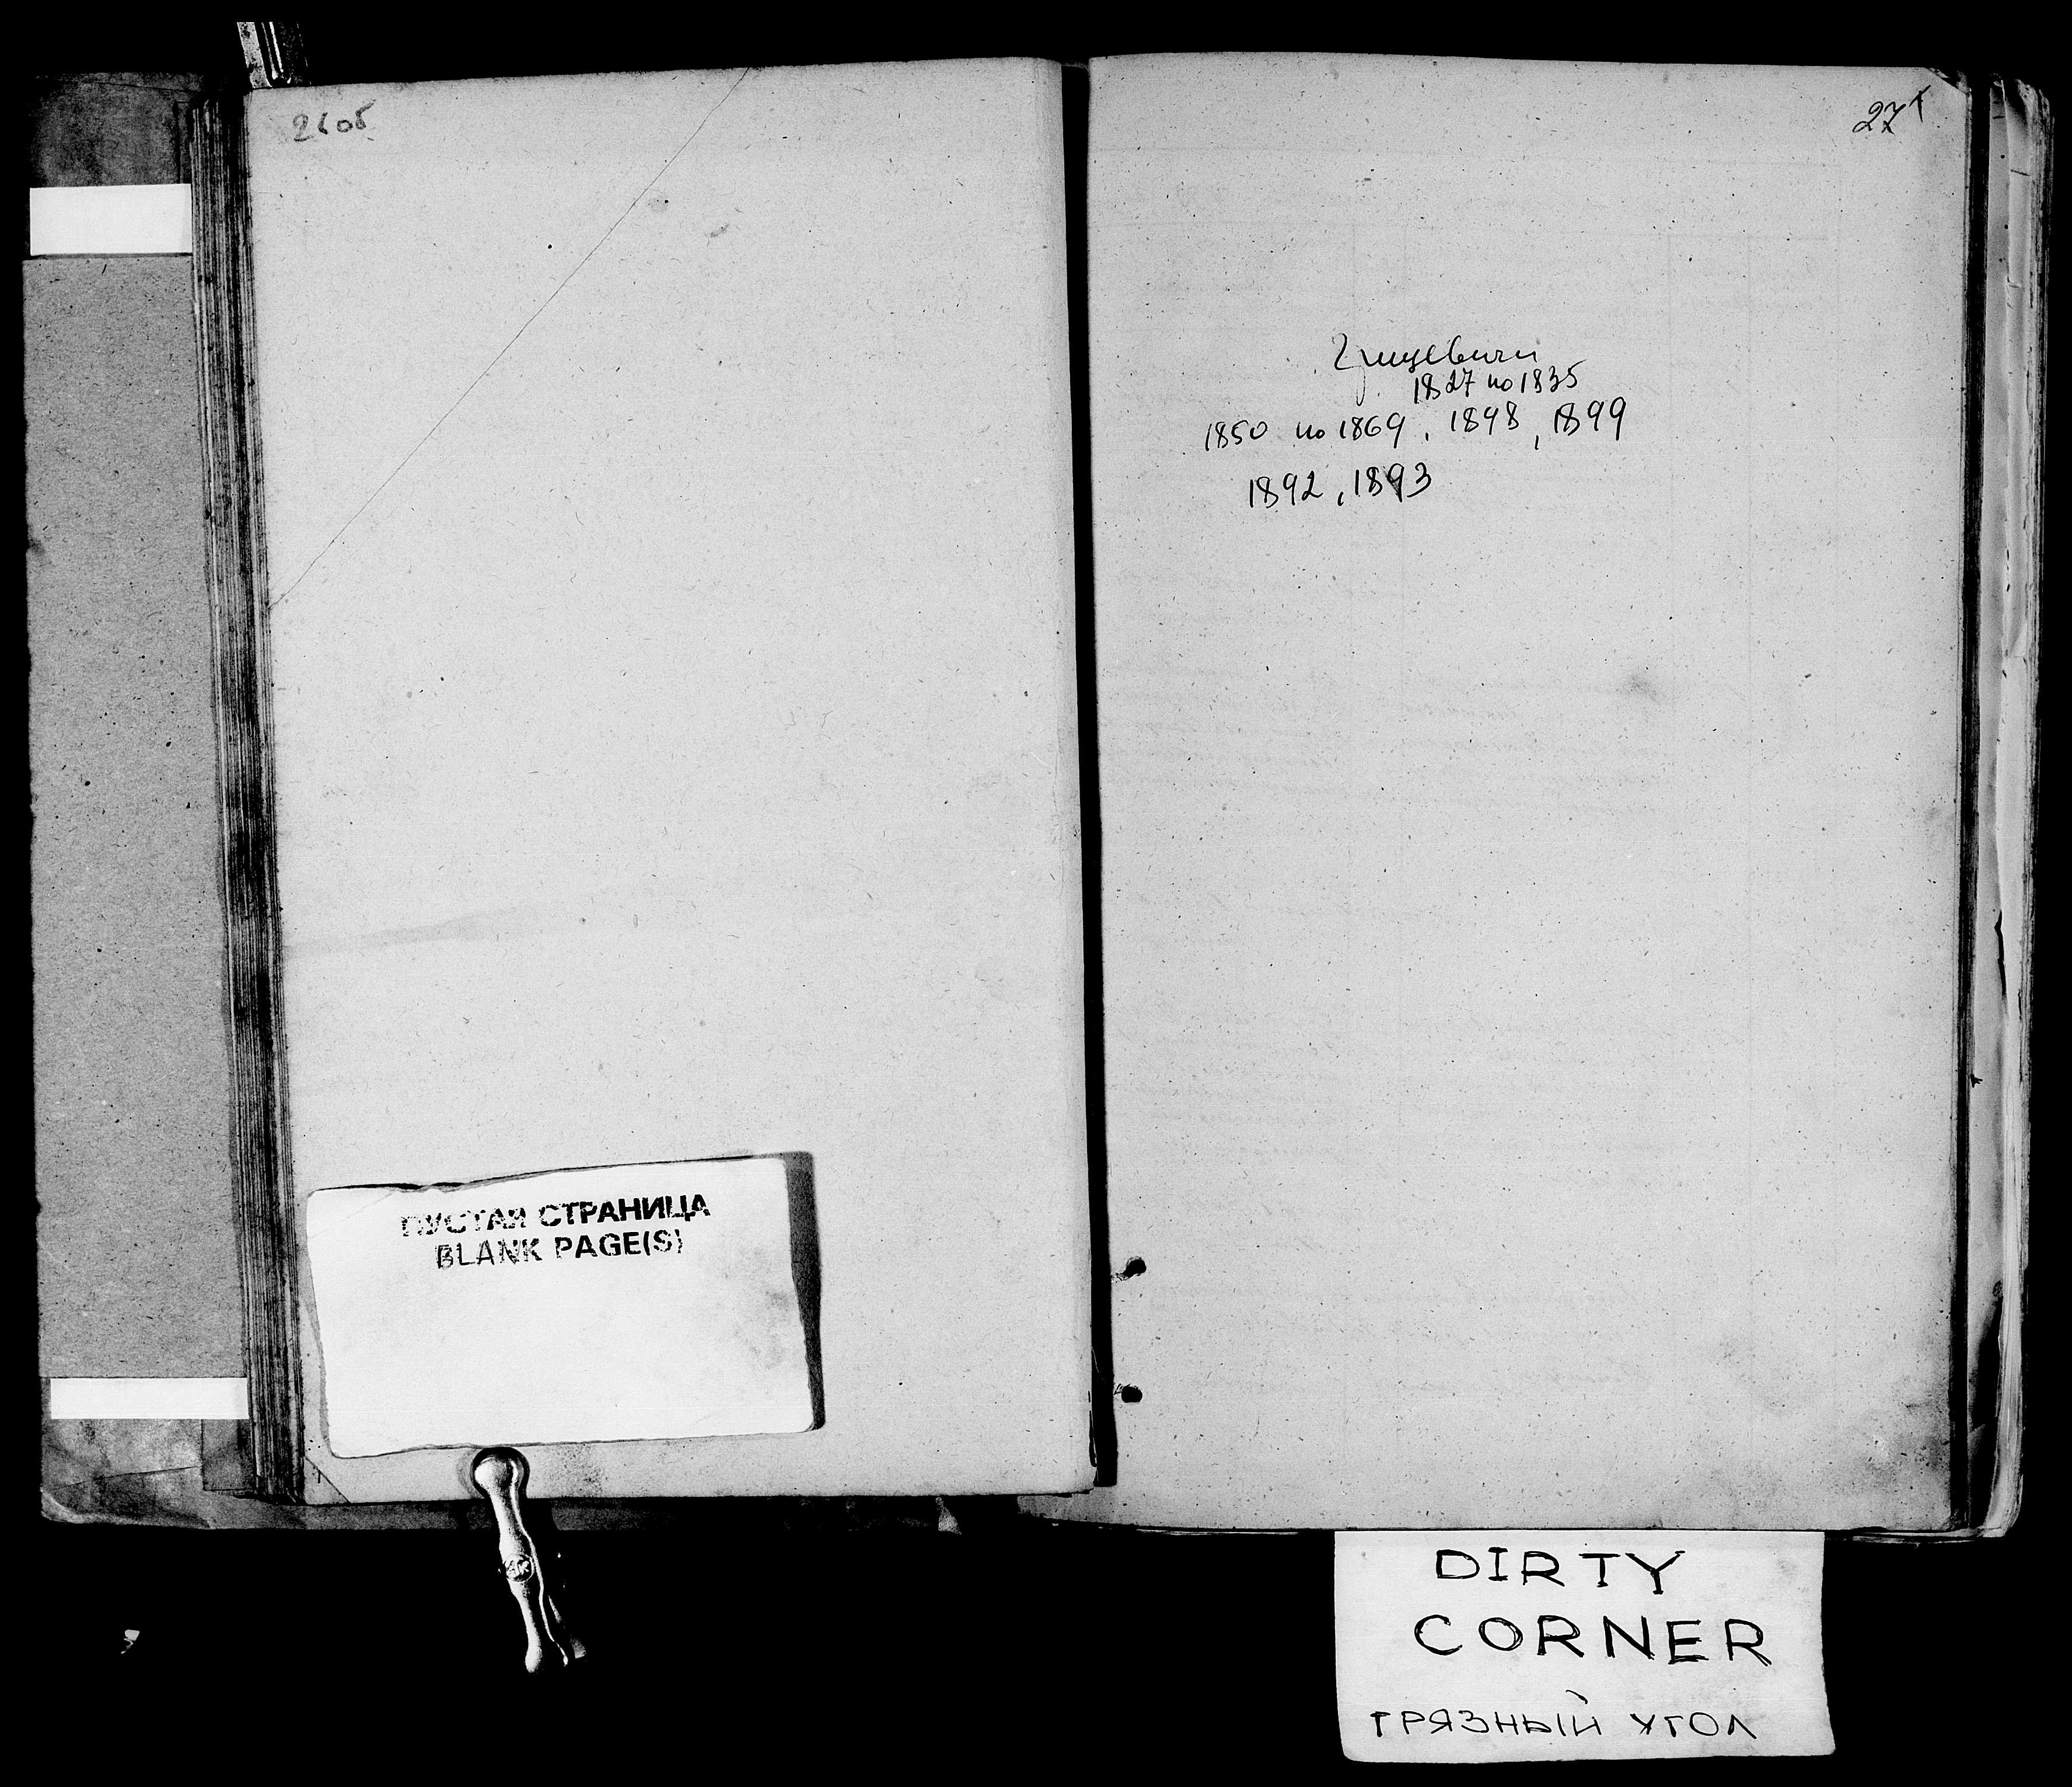 26об
27
Грицевичи
1827 по 1835
1850 по 1869, 1898, 1899
1892, 1893
ПУСТАЯ СТРАНИЦА
BLANK PAGE(S)
DIRTY
CORNER
ГРЯЗНЫЙ УГОЛ